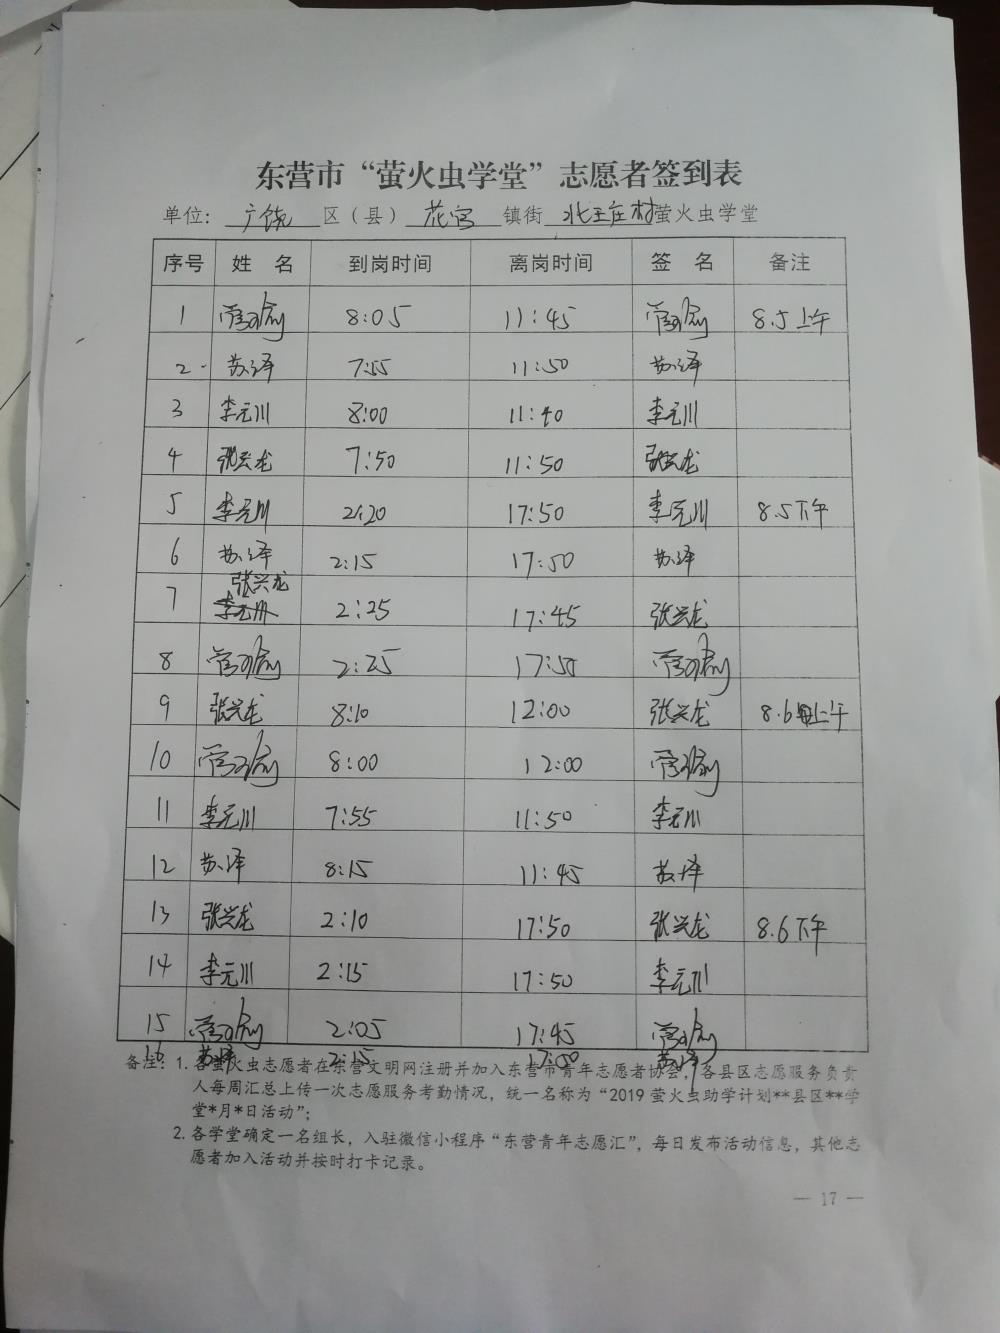 东营市“萤火虫学堂”志愿者签到表
单位: 广饶 区（县） 花官 镇街 北王庄村 萤火虫学堂
序号 姓 名 到岗时间 离岗时间 签 名 备注
1 8:05 11:45 8.5上午
2 苏泽 7:55 11:50 苏泽
3 李元川 8:00 11:40 李元川
4 张兴龙 7:50 11:50 张兴龙
5 李元川 2:20 17:50 李元川 8.5下午
6 苏泽 2:15 17:50 苏泽
7 张兴龙 李元川 2:25 17:45 张兴龙
8 2:25 17:50
9 张兴龙 8:10 12:00 张兴龙 8.6上午
10 8:00 12:00
11 李元川 7:55 11:50 李元川
12 苏泽 8:15 11:45 苏泽
13 张兴龙 2:10 17:50 张兴龙 8.6下午
14 李元川 2:15 17:50 李元川
15 2:05 17:45
16 苏泽 2:15 17:50 苏泽
备注: 1. 各萤火虫志愿者在东营文明网注册并加入东营市青年志愿者协会，各县区志愿服务负责
人每周汇总上传一次志愿服务考勤情况，统一名称为“2019 萤火虫助学计划**县区**学
堂*月*日活动”；
2. 各学堂确定一名组长，入驻微信小程序“东营青年志愿汇”，每日发布活动信息，其他志
愿者加入活动并按时打卡记录。
— 17 —